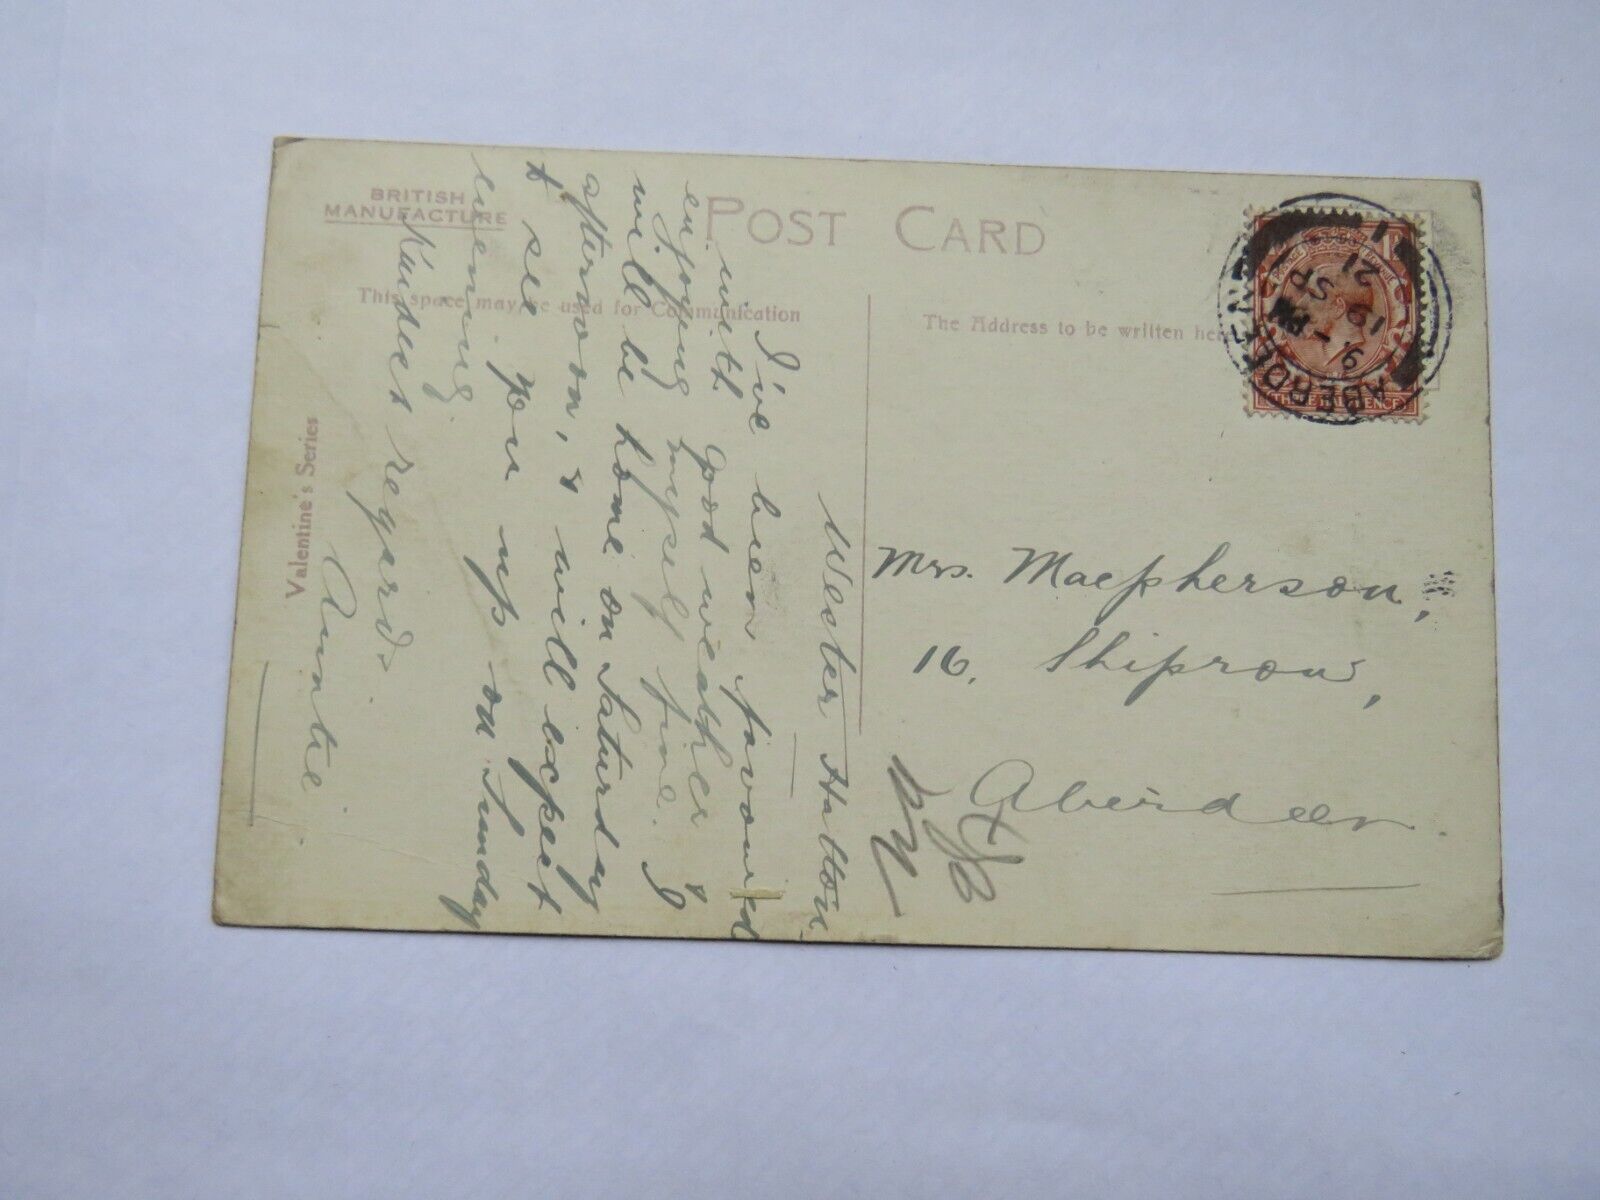 BRITISH
MANUFACTURE
POST CARD
This space may be used for Communication
The Address to be written here
Valentine's Series
Wester Hatton.
I've been favoured
with good weather &
enjoying myself fine. I
will be home on Saturday
afternoon, & will expect
to see you up on Sunday
evening.
Kindest regards
Auntie
Mrs. Macpherson,
16, Shiprow,
Aberdeen.
ABERDEEN
9. 1 PM
19 SP
21
1
THREE HALFPENCE